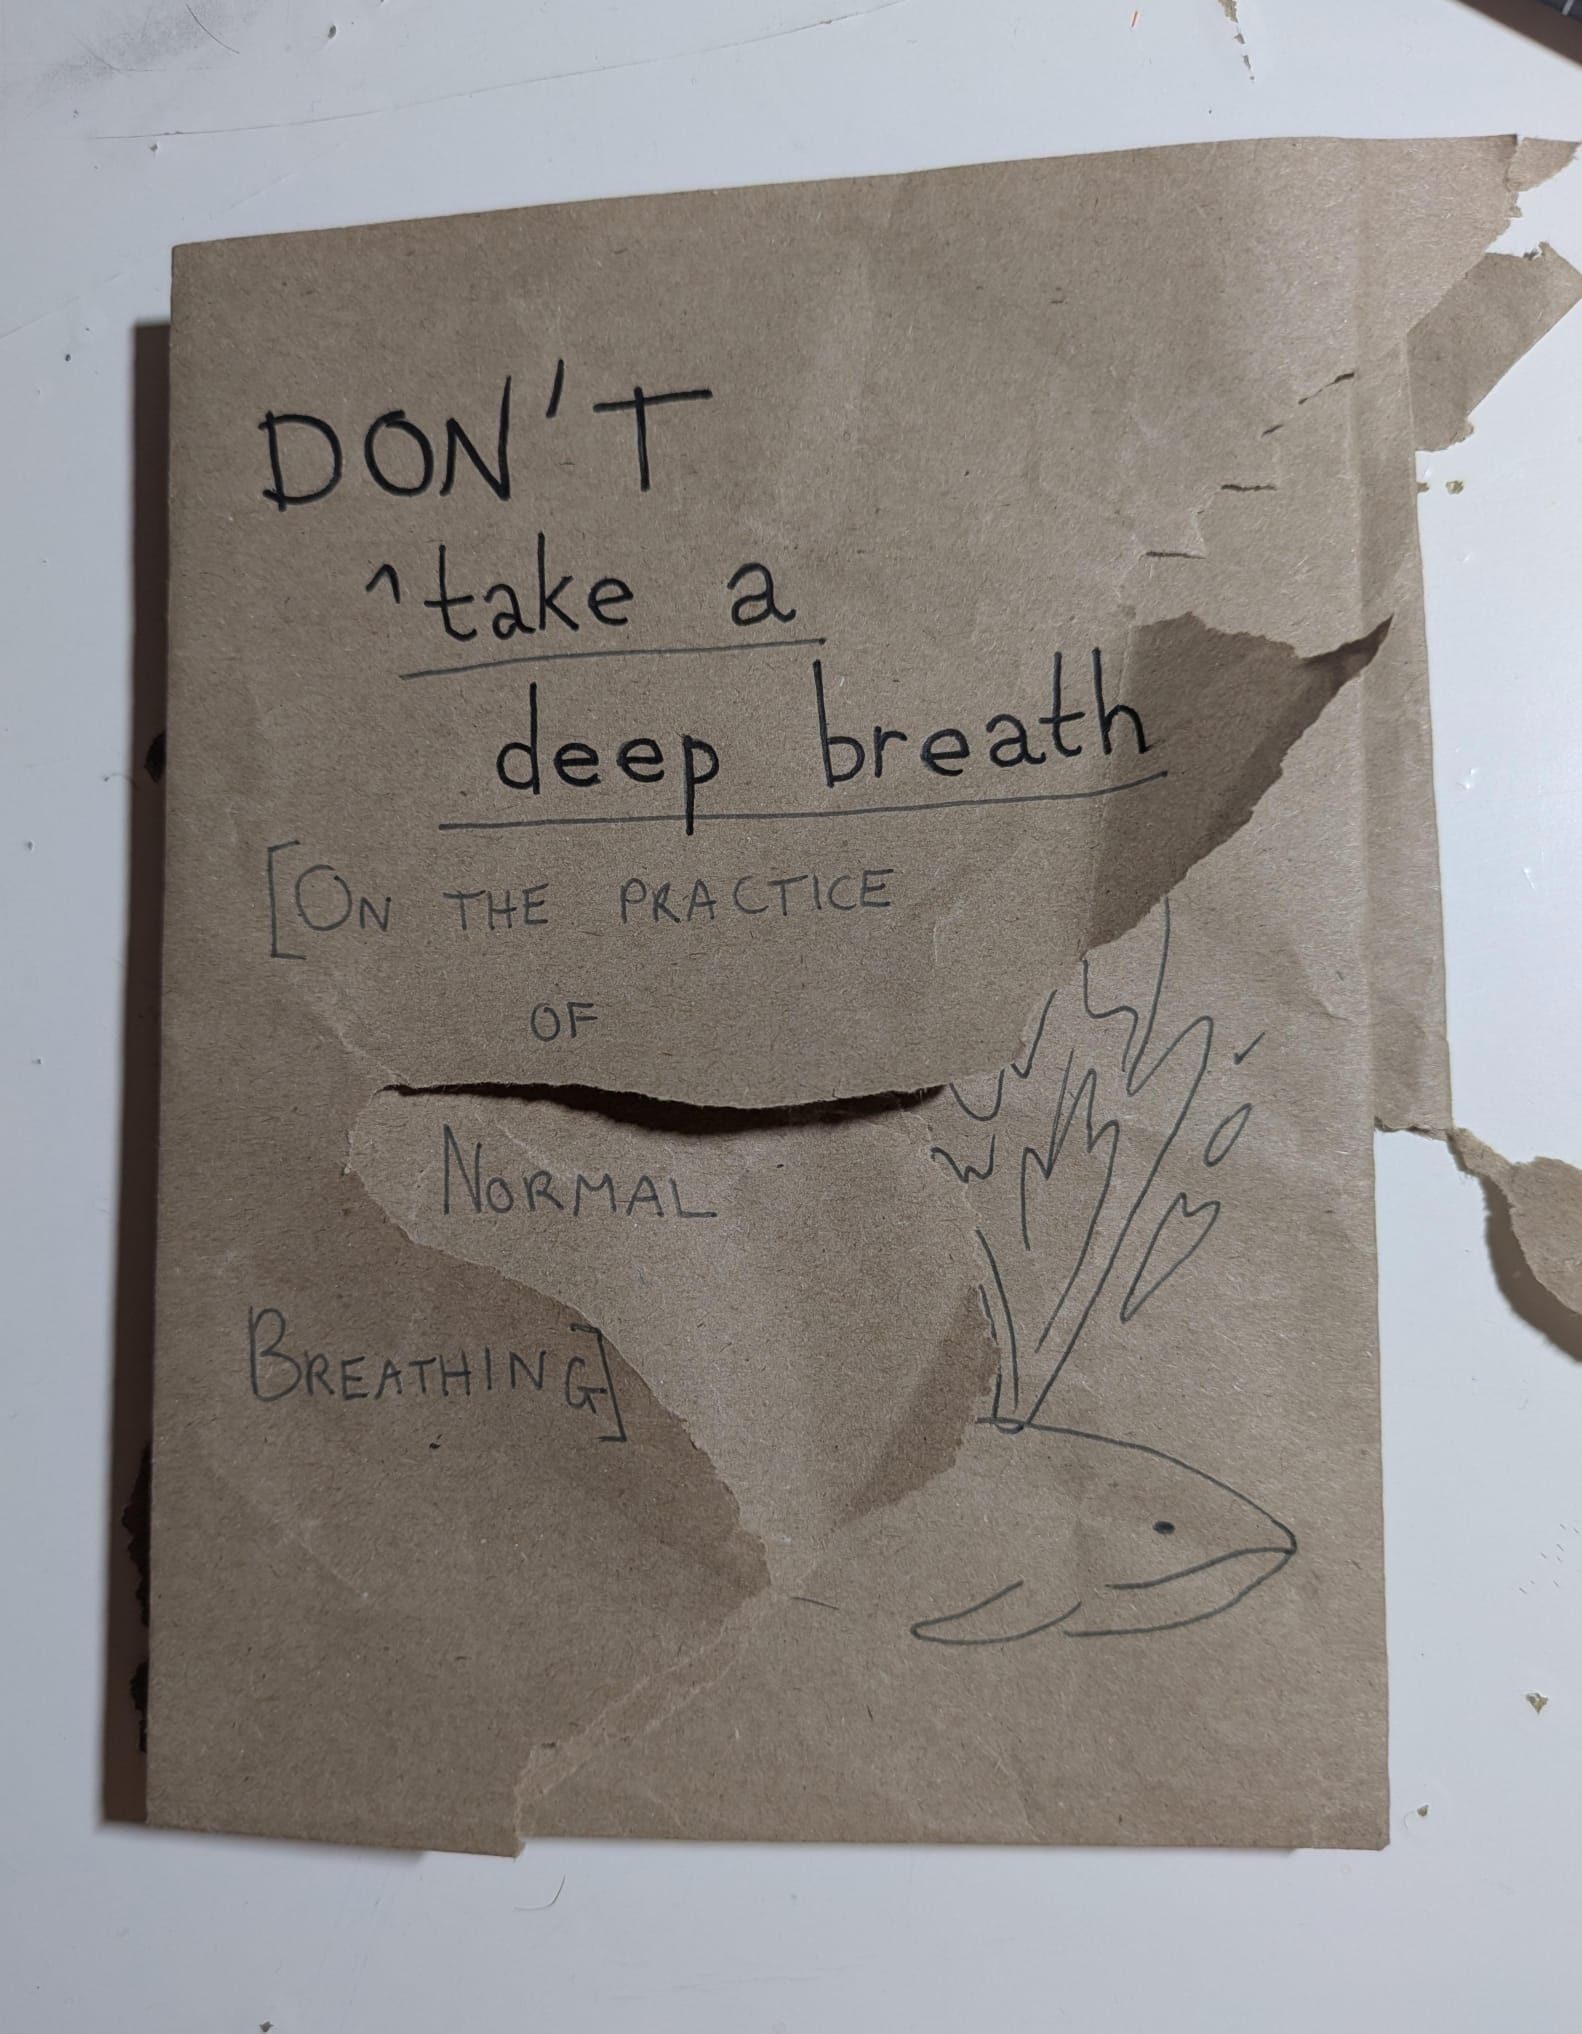 DON'T
^take a
deep breath
[ON THE PRACTICE
OF
NORMAL
BREATHING]